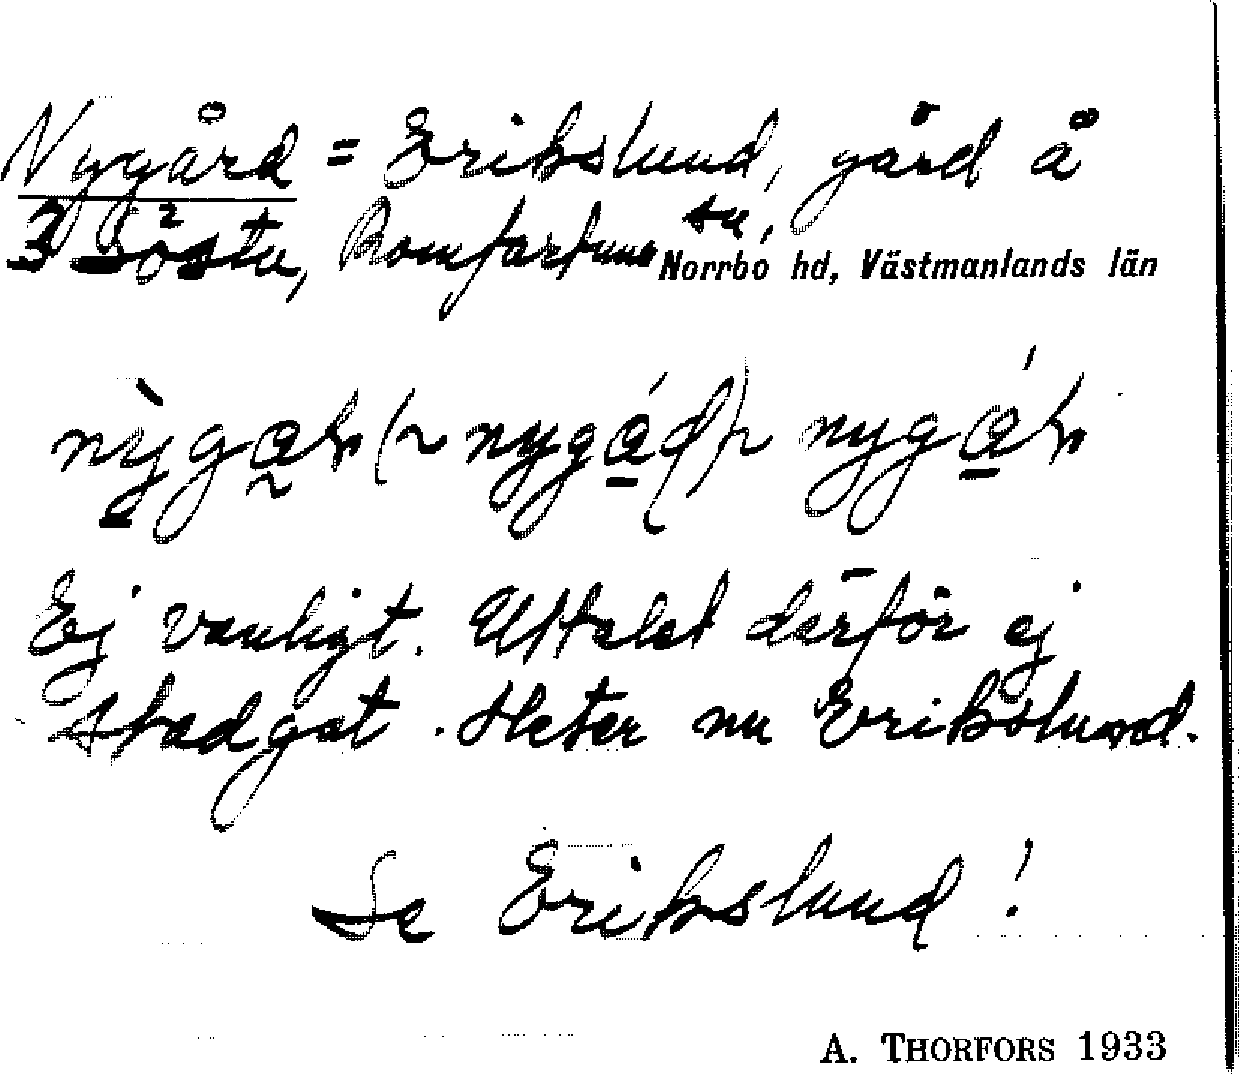 Nygård = Erikslund, gård å
3 Sösta, Romfartuna sn,
Norrbo hd, Västmanlands län
Ej vanligt. Uttalet därför ej
stadgat. Heter nu Erikslund.
Se Erikslund!
A. THORFORS 1933